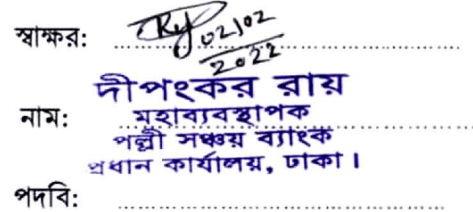 স্বাক্ষর: 02/02
2022
দীপংকর রায়
নাম: মহাব্যবস্থাপক
পল্লী সঞ্চয় ব্যাংক
প্রধান কার্যালয়, ঢাকা।
পদবি: